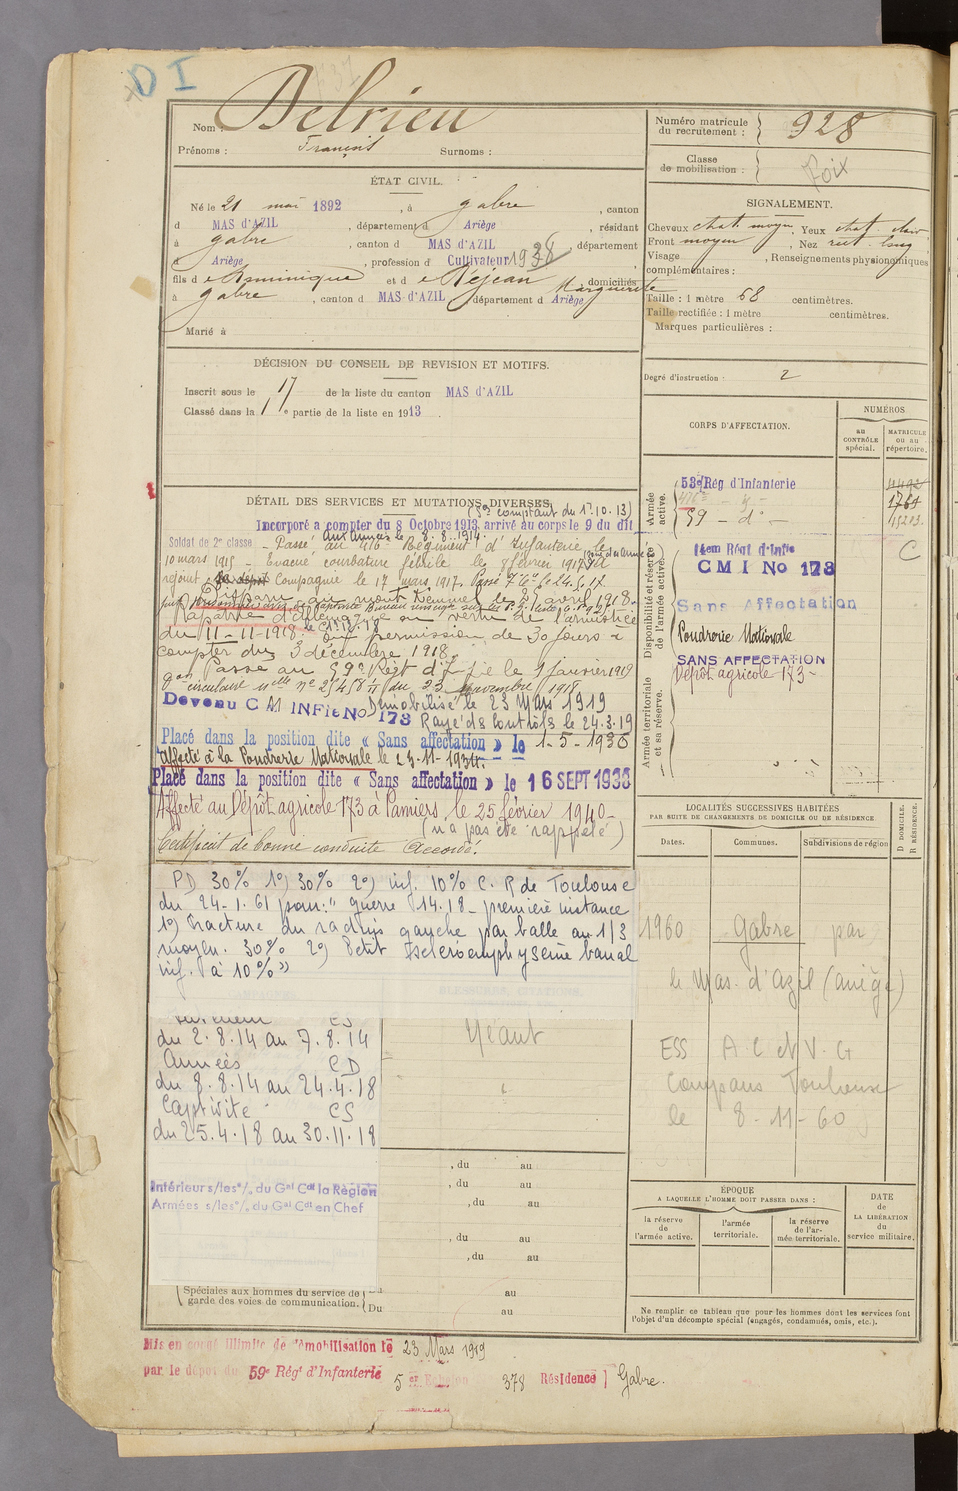 D I
Nom : Delrieu
Prénoms : François Surnoms :
Numéro matricule du recrutement : 928
Classe de mobilisation :
Foix
ÉTAT CIVIL.
Né le 21 mai 1892, à Gabre, canton
d MAS d'AZIL, département d Ariège, résidant
à Gabre, canton d MAS d'AZIL département
d Ariège, profession d Cultivateur 1938
fils de Dominique et de Réjean Marguerite domiciliés
à Gabre, canton d MAS d'AZIL département d Ariège
Marié à
SIGNALEMENT.
Cheveux chat. moyen, Yeux chat. clair
Front moyen, Nez rect. long
Visage , Renseignements physionomiques
complémentaires :
Taille : 1 mètre 68 centimètres.
Taille rectifiée : 1 mètre centimètres.
Marques particulières :
Degré d'instruction : 2
DÉCISION DU CONSEIL DE REVISION ET MOTIFS.
Inscrit sous le 17 de la liste du canton MAS d'AZIL
Classé dans la 1e partie de la liste en 1913.
CORPS D'AFFECTATION.
NUMÉROS
au CONTRÔLE spécial.
MATRICULE ou au répertoire.
Armée active.
53e Rég d'Infanterie
416e - d° -
1764
59 - d° -
15213
Disponibilité et réserve de l'armée active.
14em Régt d'Infie
C
CMI No 173
Sans Affectation
Poudrerie Nationale
SANS AFFECTATION
Dépôt agricole 173 -
Armée territoriale et sa réserve.
DÉTAIL DES SERVICES ET MUTATIONS DIVERSES
(Se comptant du 1.10.13)
Incorporé a compter du 8 Octobre 1913 arrivé au corps le 9 du dit
Aux Armées le 8.8.1914.
Soldat de 2e classe - Passé au 416e Régiment d'Infanterie le
10 mars 1915 - Evacué courbature fébrile le 8 février 1917
rejoint Compagnie le 17 mars 1917. Passé 7e Cie le 24.5.17
Disparu au mont Kemmel le 25 avril 1918.
Rapatrié d'Allemagne en vertu de l'armistice
du 11-11-1918. En permission de 30 jours à
compter du 3 décembre 1918.
Passé au 59e Régt d'Infie le 9 janvier 1919
on circulaire mlle n° 25458 du 23 Novembre 1918
Démobilisé le 23 Mars 1919
Devenu C M INFie No 173 Rayé des Contrôles le 24.3.19
Placé dans la position dite « Sans affectation » le 1-5-1930
Affecté à la Poudrerie Nationale le 23-11-1934.
Placé dans la position dite « Sans affectation » le 16 SEPT 1938
Affecté au Dépôt agricole 173 à Pamiers, le 25 février 1940 -
(n'a pas été rappelé)
Certificat de bonne conduite Accordé.
PD 30% 1°) 30% 2°) inf. 10% C. R de Toulouse
du 24-1-61 pour : " guerre 14.18 - première instance
1°) Fracture du radius gauche par balle au 1/3
moyen. 30% 2°) Petit scléroemphysème banal
inf. à 10% "
LOCALITÉS SUCCESSIVES HABITÉES
PAR SUITE DE CHANGEMENTS DE DOMICILE OU DE RÉSIDENCE
Dates. Communes. Subdivisions de région
D DOMICILE.
R RÉSIDENCE.
1960 Gabre par
le Mas. d'Azil (Ariège)
ESS A C et V. G
Compans Toulouse
le 8-11-60
BLESSURES, CITATIONS,
Néant
Intérieur CS
du 2.8.14 au 7.8.14
Armées CD
du 8.8.14 au 24.4.18
Captivité CS
du 25.4.18 au 30.11.18
Intérieur s/les o/. du Gal Cdt la Région
Armées s/les o/. du Gal Cdt en Chef
, du au
, du au
, du au
, du au
, du au
au
Spéciales aux hommes du service de garde des voies de communication. Du au
ÉPOQUE
A LAQUELLE L'HOMME DOIT PASSER DANS :
la réserve de l'armée active.
l'armée territoriale.
la réserve de l'armée territoriale.
DATE de LA LIBÉRATION du service militaire.
Ne remplir ce tableau que pour les hommes dont les services font
l'objet d'un décompte spécial (engagés, condamnés, omis, etc.).
Mis en congé illimité de démobilisation le 23 Mars 1919
par le dépôt du 59e Régt d'Infanterie 5er Echelon 378 Résidence Gabre.